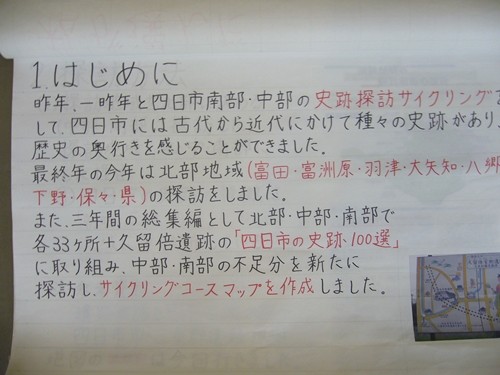 1.はじめに
昨年、一昨年と四日市南部・中部の史跡探訪サイクリングを
して、四日市には古代から近代にかけて種々の史跡があり、
歴史の奥行きを感じることができました。
最終年の今年は北部地域(富田・富洲原・羽津・大矢知・八郷
下野・保々・県)の探訪をしました。
また、三年間の総集編として北部・中部・南部で
各33ヶ所+久留倍遺跡の「四日市の史跡100選」
に取り組み、中部・南部の不足分を新たに
探訪し、サイクリングコースマップを作成しました。